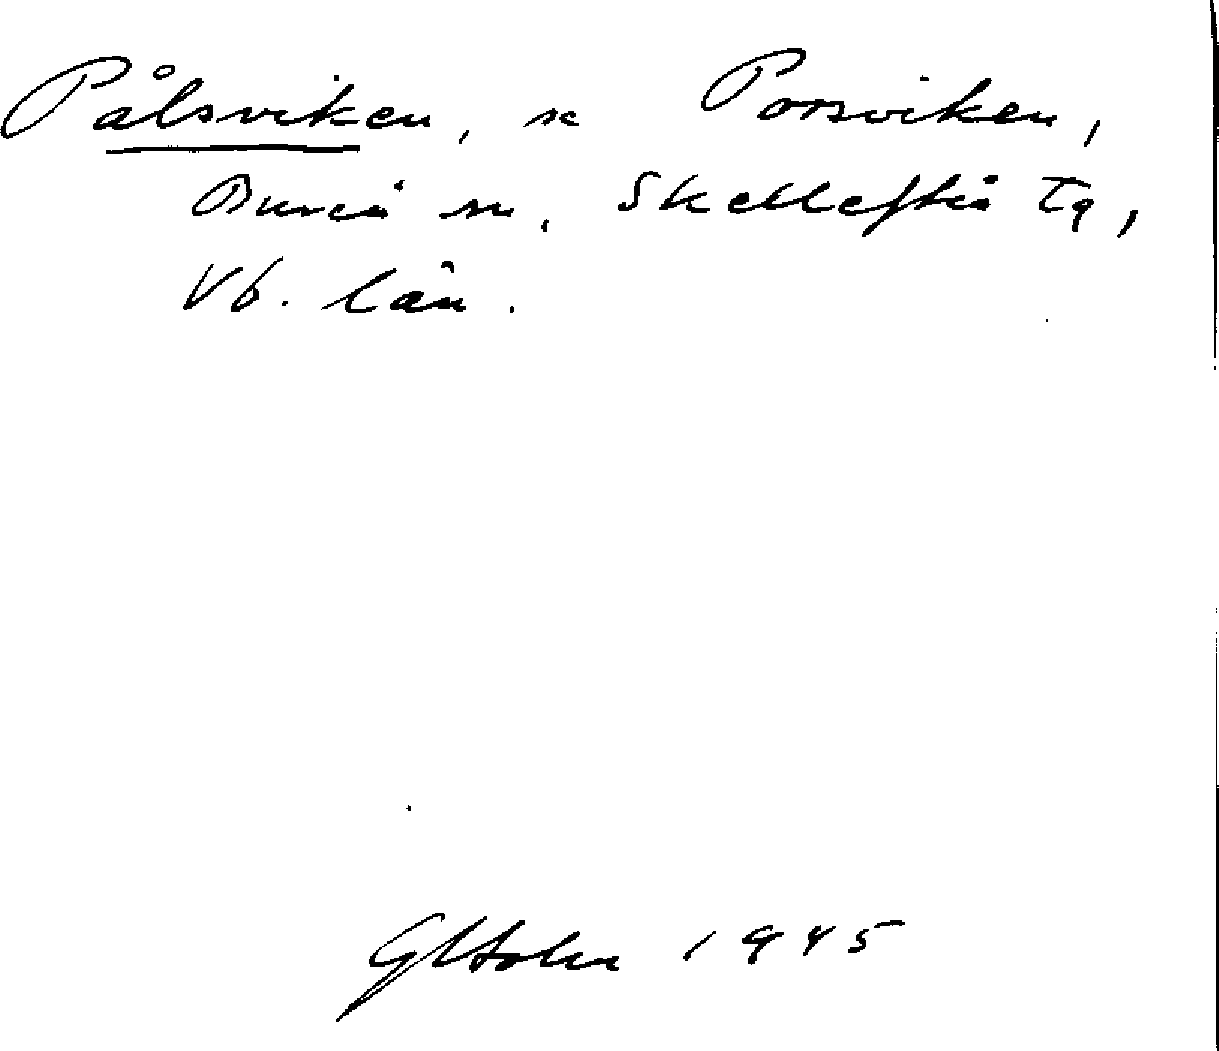 Pålsviken, se Porsviken,
Bureå sn, Skellefteå tg,
Vb. län.
1945